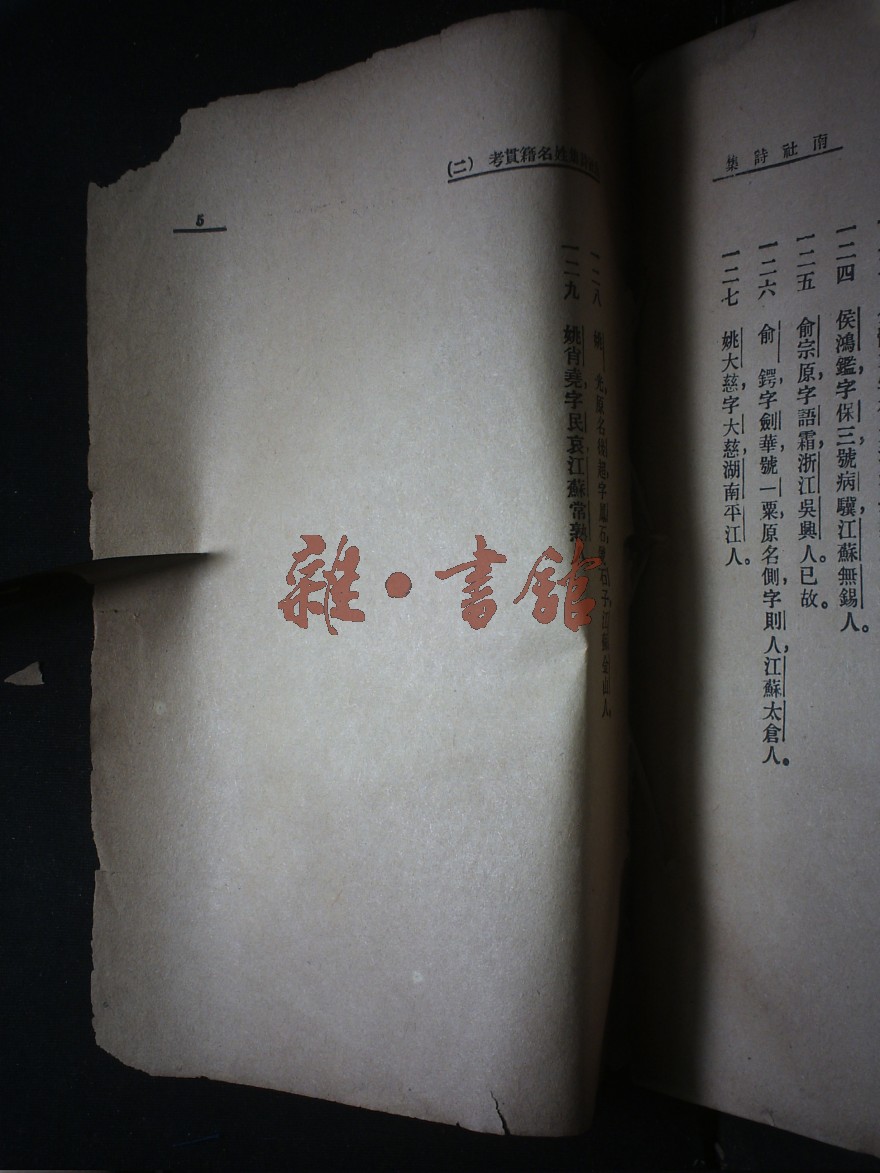 南社詩集
一二四 侯鴻鑑,字保三,號病驥,江蘇無錫人。
一二五 俞宗原,字語霜,浙江吳興人。已故。
一二六 俞 鍔,字劍華,號一粟,原名側,字則人,江蘇太倉人。
一二七 姚大慈,字大慈,湖南平江人。
姓名籍貫考(二)
5
一二八 姚 光,原名後超,字鳳石,號石子,江蘇金山人。
一二九 姚肖堯,字民哀,江蘇常熟
雜·書館